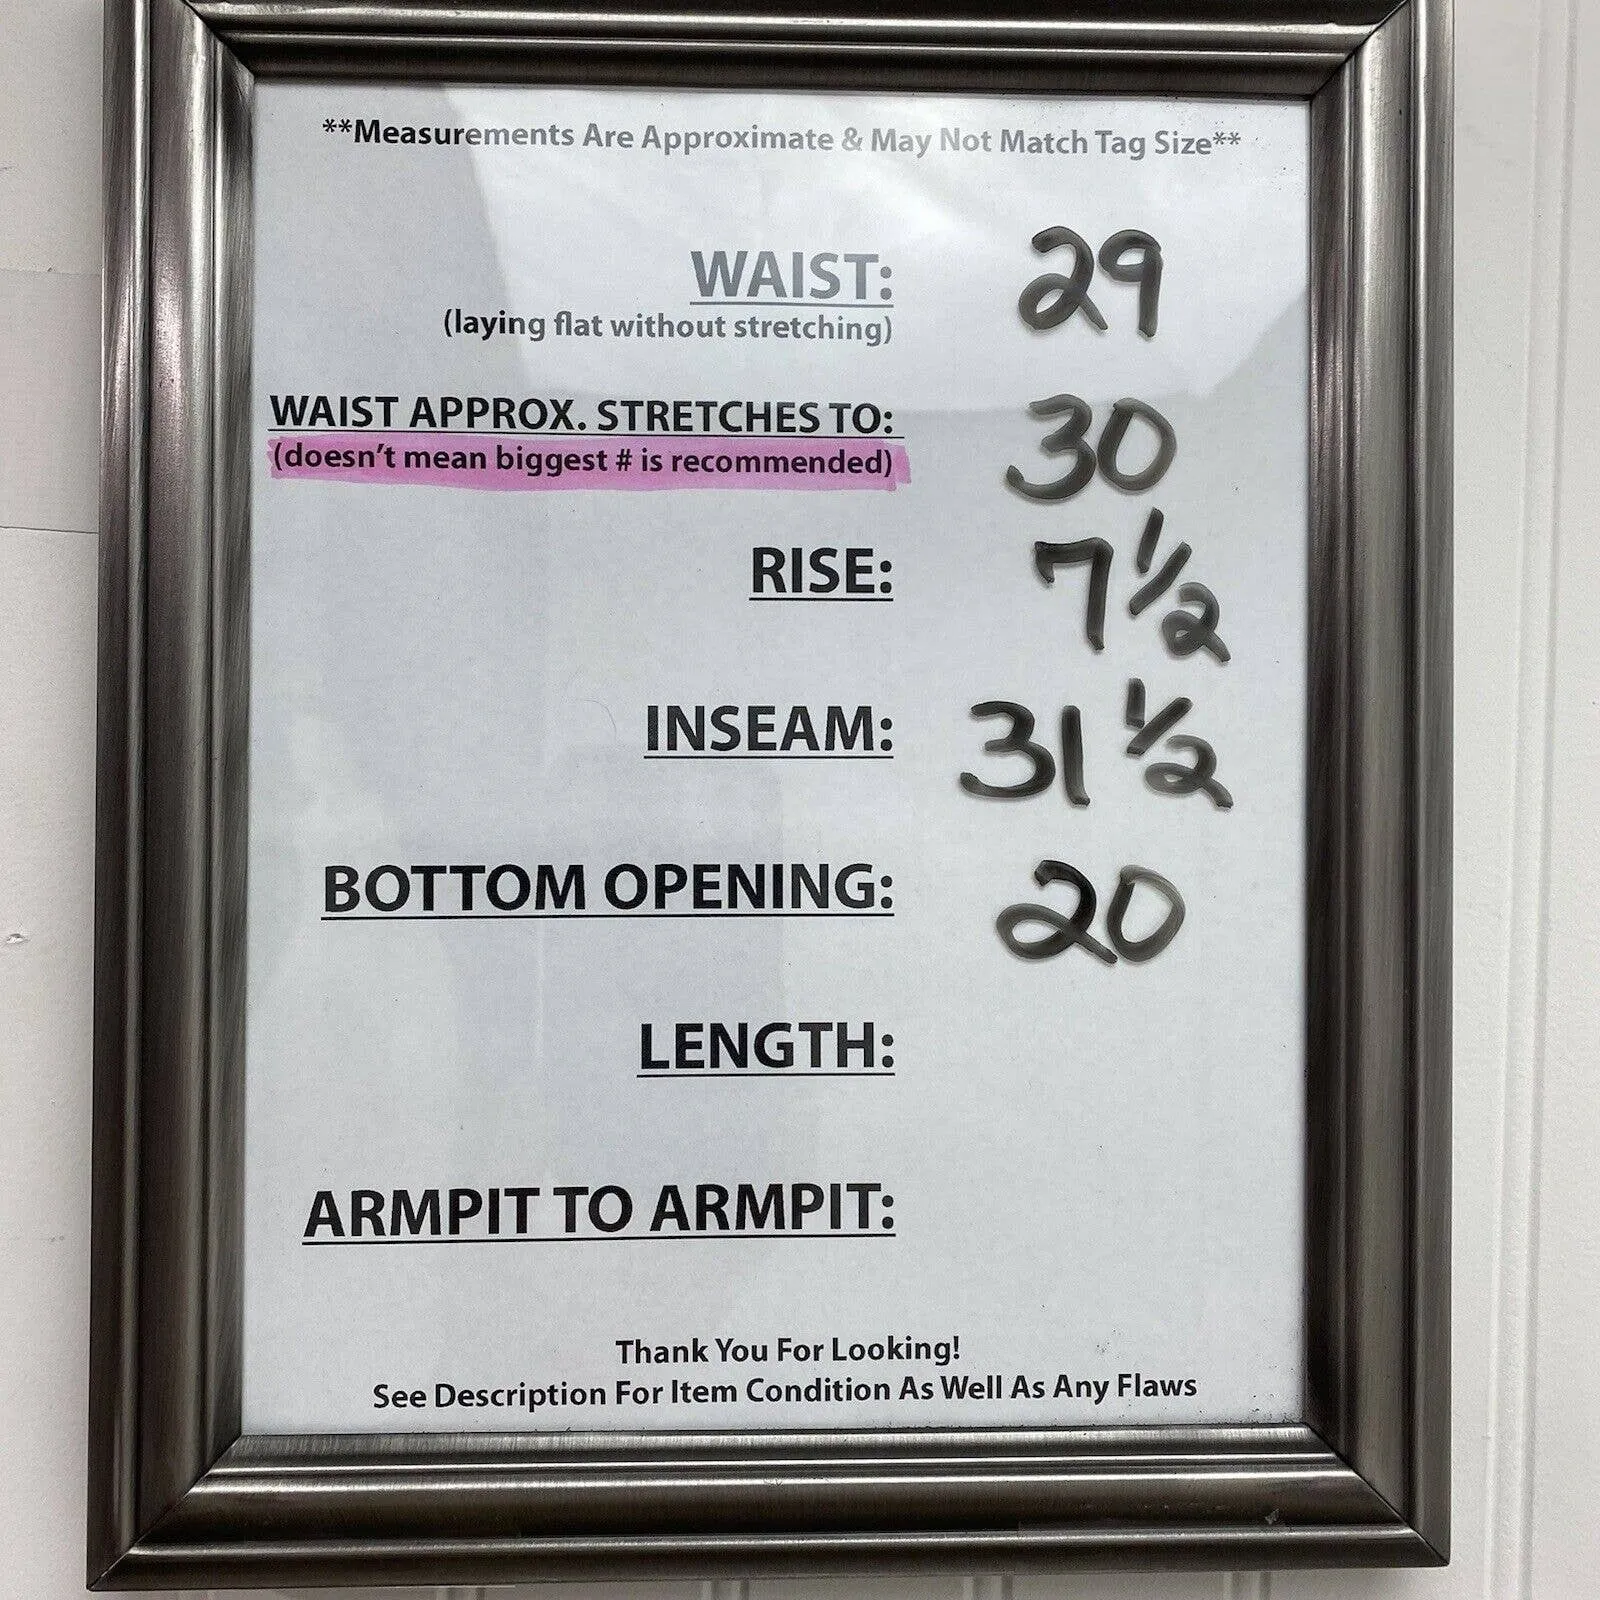 **Measurements Are Approximate & May Not Match Tag Size**
WAIST: 29
(laying flat without stretching)
WAIST APPROX. STRETCHES TO: 30
(doesn't mean biggest # is recommended)
RISE: 7 1/2
INSEAM: 31 1/2
BOTTOM OPENING: 20
LENGTH:
ARMPIT TO ARMPIT:
Thank You For Looking!
See Description For Item Condition As Well As Any Flaws